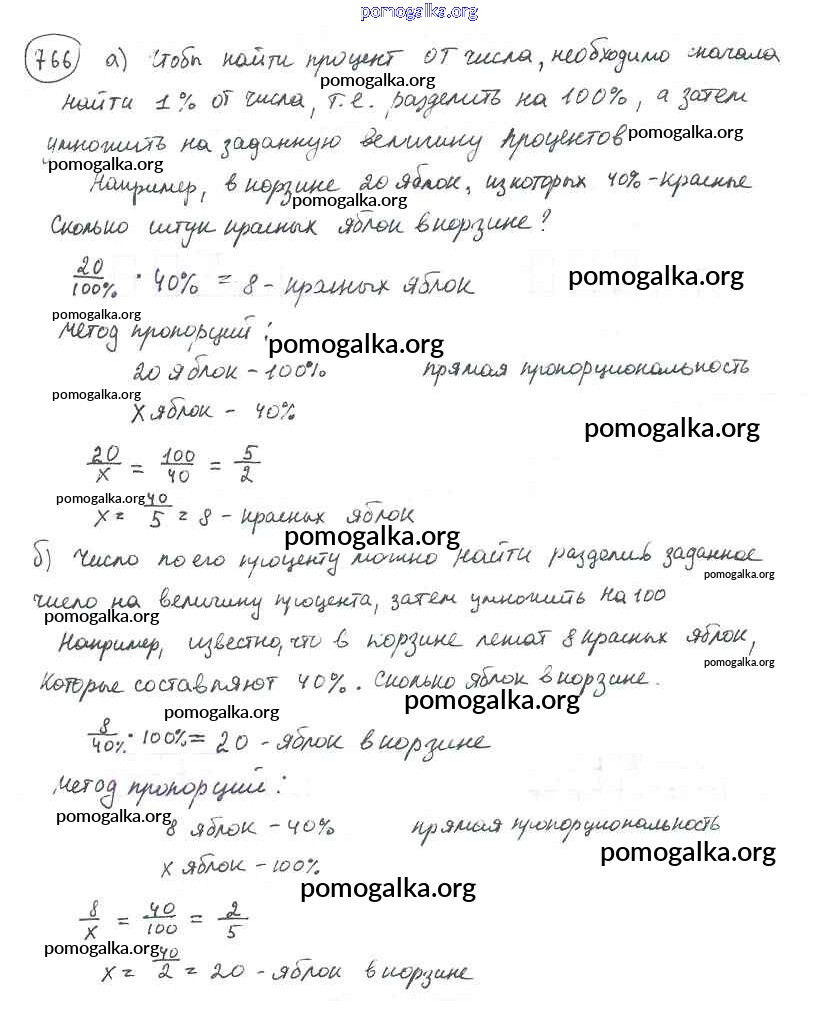 pomogalka.org
766 а) Чтобы найти процент от числа, необходимо сначала
pomogalka.org
найти 1% от числа, т.е. разделить на 100%, а затем
умножить на заданную величину процентов pomogalka.org
pomogalka.org
Например, в корзине 20 яблок, из которых 40% - красные
pomogalka.org
Сколько штук красных яблок в корзине?
20/100% · 40% = 8 - красных яблок pomogalka.org
pomogalka.org
Метод пропорций: pomogalka.org
20 яблок - 100% прямая пропорциональность
pomogalka.org
x яблок - 40% pomogalka.org
20/x = 100/40 = 5/2
pomogalka.org
x = 40/5 = 8 - красных яблок
pomogalka.org
б) Число по его проценту можно найти разделив заданное
pomogalka.org
число на величину процента, затем умножить на 100
pomogalka.org
Например, известно, что в корзине лежат 8 красных яблок,
pomogalka.org
которые составляют 40%. Сколько яблок в корзине.
pomogalka.org pomogalka.org
8/40% · 100% = 20 - яблок в корзине
Метод пропорций:
pomogalka.org
8 яблок - 40% прямая пропорциональность
pomogalka.org
x яблок - 100%
pomogalka.org
8/x = 40/100 = 2/5
pomogalka.org
x = 40/2 = 20 - яблок в корзине